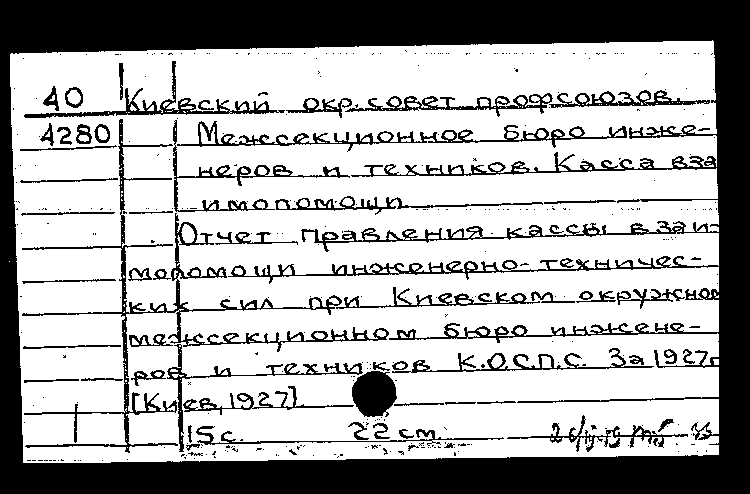 40 Киевский окр. совет профсоюзов.
4280 Межсекционное бюро инже-
неров и техников. Касса вза
имопомощи
Отчет правления кассы взаи-
мопомощи инженерно-техничес-
ких сил при Киевском окружном
межсекционном бюро инжене-
ров и техников К.О.С.П.С. За 1927г
[Киев, 1927].
15 с. 22 см.